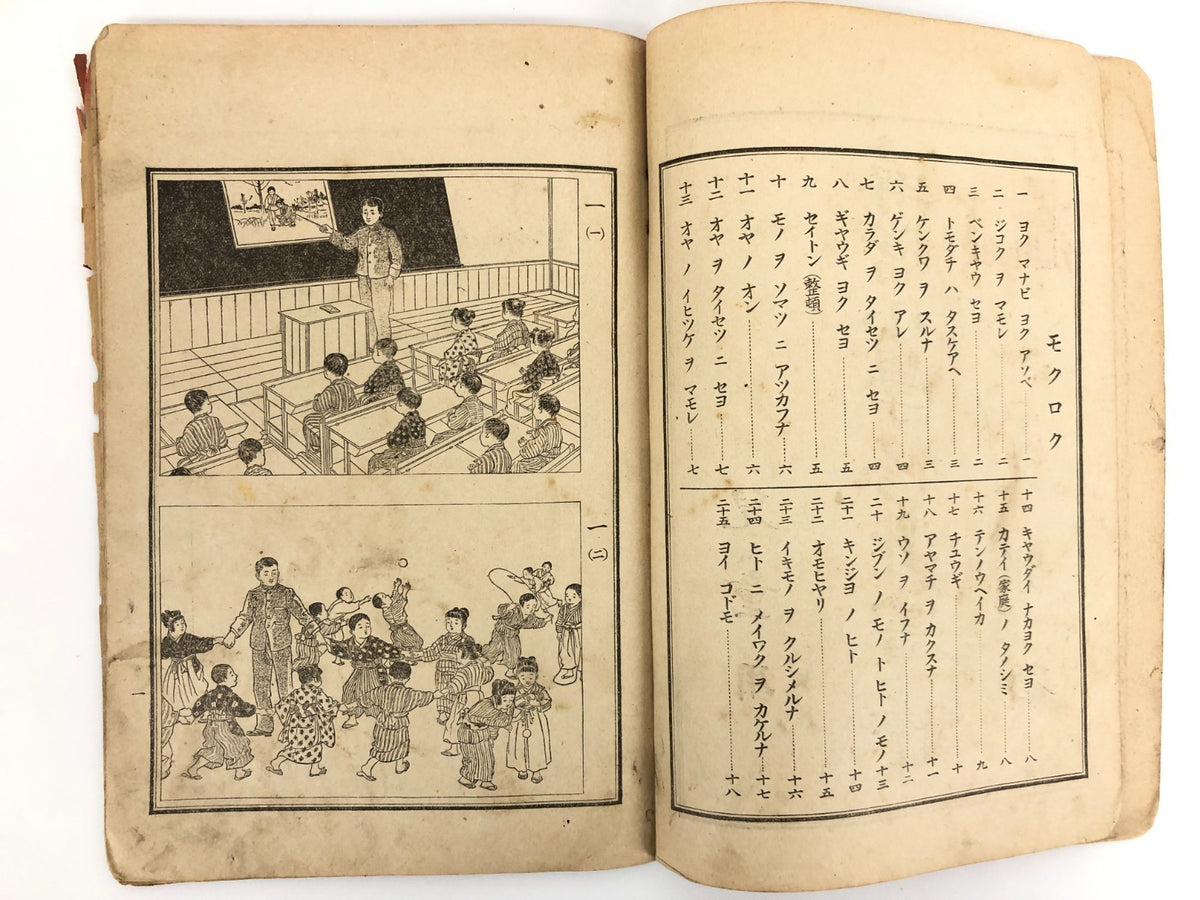 モクロク
一 ヨク マナビ ヨク アソベ 一
二 ジコク ヲ マモレ 二
三 ベンキヤウ セヨ 二
四 トモダチ ハ タスケアヘ 三
五 ケンクワ ヲ スルナ 三
六 ゲンキ ヨク アレ 四
七 カラダ ヲ タイセツ ニ セヨ 四
八 ギヤウギ ヨク セヨ 五
九 セイトン(整頓) 五
十 モノ ヲ ソマツ ニ アツカフナ 六
十一 オヤ ノ オン 六
十二 オヤ ヲ タイセツ ニ セヨ 七
十三 オヤ ノ イヒツケ ヲ マモレ 七
十四 キヤウダイ ナカヨク セヨ 八
十五 カテイ(家庭) ノ タノシミ 八
十六 テンノウヘイカ 九
十七 チユウギ 十
十八 アヤマチ ヲ カクスナ 十一
十九 ウソ ヲ イフナ 十二
二十 ジブン ノ モノ ト ヒト ノ モノ 十三
二十一 キンジヨ ノ ヒト 十四
二十二 オモヒヤリ 十五
二十三 イキモノ ヲ クルシメルナ 十六
二十四 ヒト ニ メイワク ヲ カケルナ 十七
二十五 ヨイ コドモ 十八
一(一)
一(二)
一